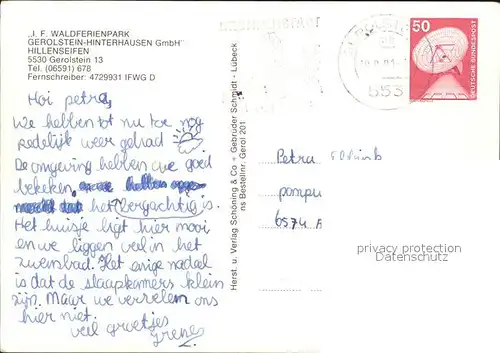 „I. F. WALDFERIENPARK
GEROLSTEIN-HINTERHAUSEN GmbH"
HILLENSEIFEN
5530 Gerolstein 13
Tel. (06591) 678
Fernschreiber: 4729931 IFWG D
Hoi petra,
We hebben tot nu toe nog
redelijk weer gehad
De omgeving hebben we goed
bekeken,
het vergachtig is.
Het huisje ligt hier mooi
en we liggen veel in het
zwembad. Het enige nadeel
is dat de slaapkamers klein
zijn. Maar we vervelen ons
hier niet.
veel groetjes
Irene
Herst. u. Verlag Schöning & Co + Gebrüder Schmidt - Lübeck
ns Bestellnr. Gerol 201
50
DEUTSCHE BUNDESPOST
553
Petra
pompu
6574 A
privacy protection
Datenschutz